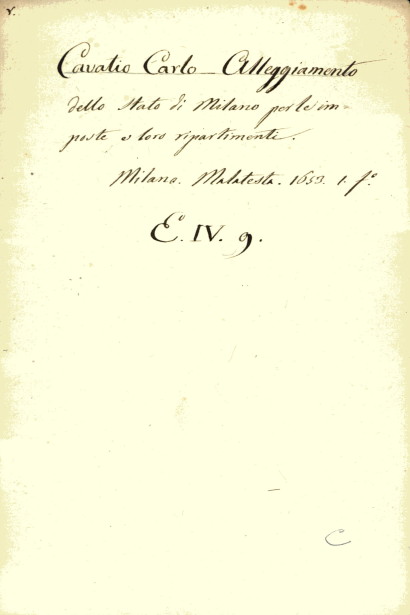 v.
Cavatio Carlo — Alleggiamento
dello stato di Milano per le im=
poste e loro ripartimenti.
Milano. Malatesta. 1653. 1. fo.
E. IV. 9.
C